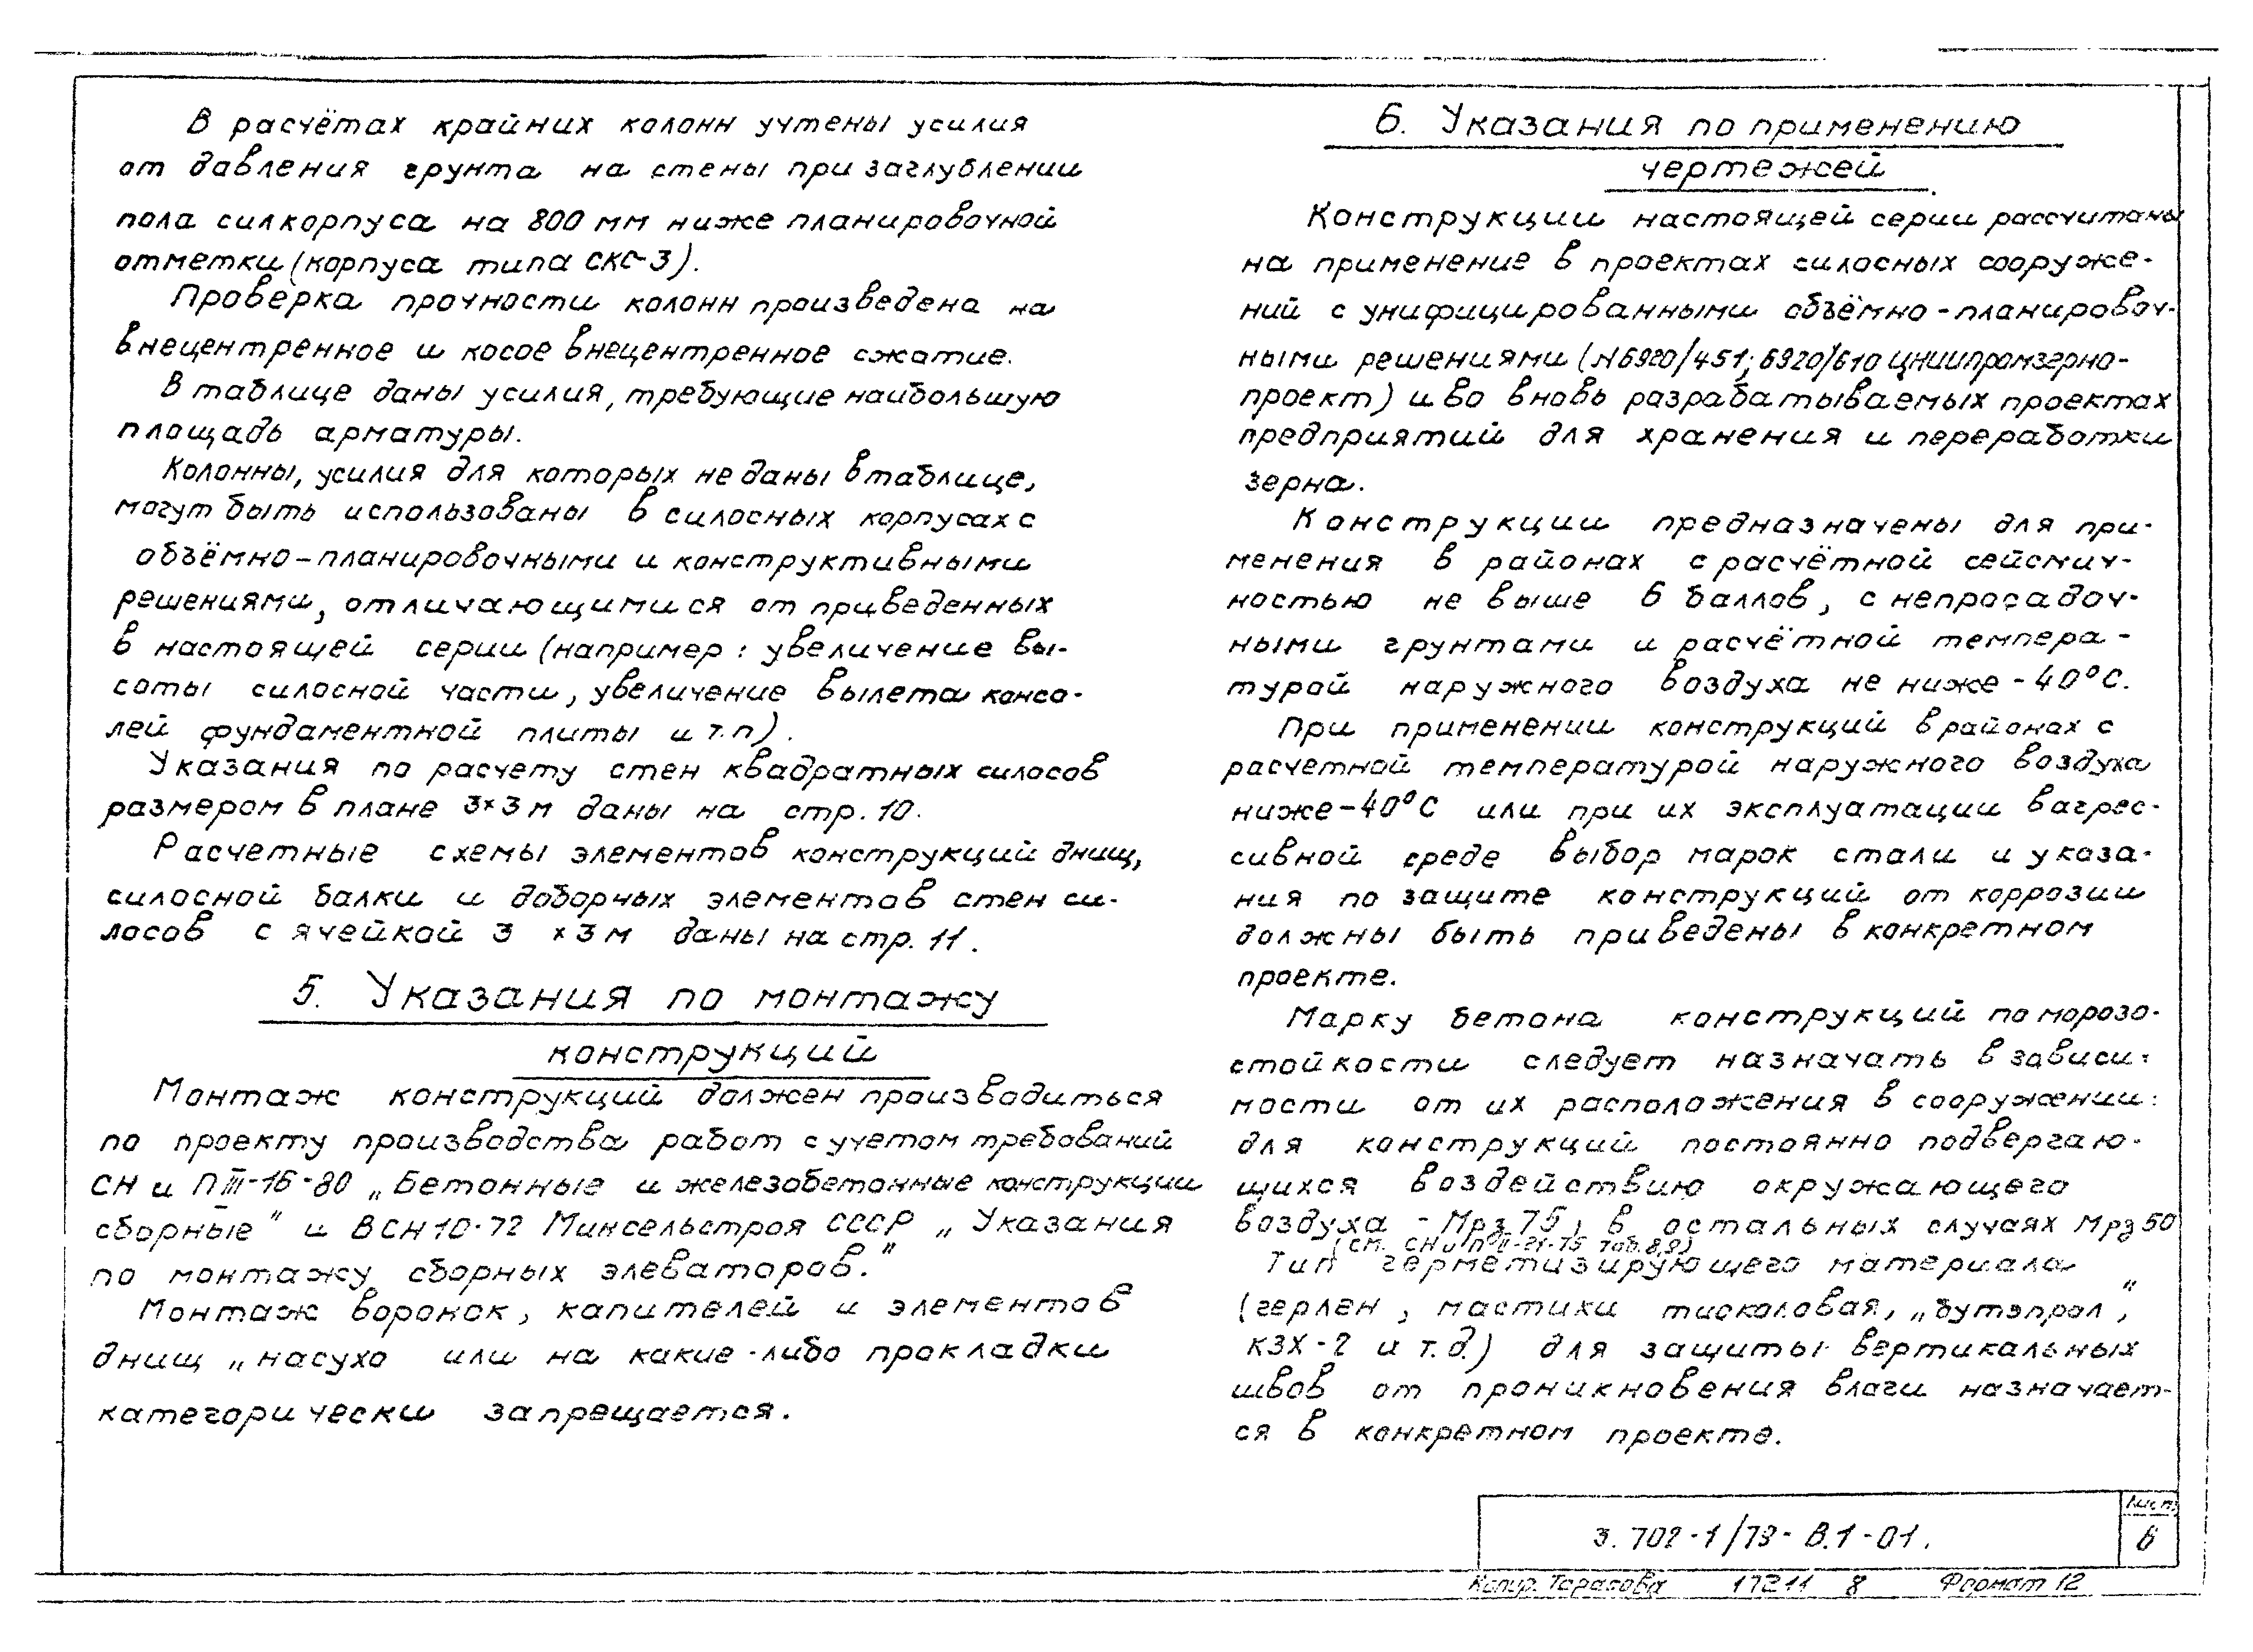 В расчётах крайних колонн учтены усилия
от давления грунта на стены при заглублении
пола силкорпуса на 800 мм ниже планировочной
отметки (корпуса типа СКС-3).
Проверка прочности колонн произведена на
внецентренное и косое внецентренное сжатие.
В таблице даны усилия, требующие наибольшую
площадь арматуры.
Колонны, усилия для которых не даны в таблице,
могут быть использованы в силосных корпусах с
объёмно-планировочными и конструктивными
решениями, отличающимися от приведенных
в настоящей серии (например: увеличение вы-
соты силосной части, увеличение вылета консо-
лей фундаментной плиты и т.п).
Указания по расчету стен квадратных силосов
размером в плане 3×3 м даны на стр. 10.
Расчетные схемы элементов конструкций днищ,
силосной балки и доборных элементов стен си-
лосов с ячейкой 3 ×3 м даны на стр. 11.
5. Указания по монтажу
конструкций
Монтаж конструкций должен производиться
по проекту производства работ с учетом требований
СН и П III-16-80 „Бетонные и железобетонные конструкции
сборные" и ВСН 10-72 Минсельстроя СССР „Указания
по монтажу сборных элеваторов."
Монтаж воронок, капителей и элементов
днищ „насухо или на какие-либо прокладки
категорически запрещается.
6. Указания по применению
чертежей
Конструкции настоящей серии рассчитаны
на применение в проектах силосных сооруже-
ний с унифицированными объёмно-планировоч-
ными решениями (N6920/451; 6920/610 ЦНИИпромзерно-
проект) и во вновь разрабатываемых проектах
предприятий для хранения и переработки
зерна.
Конструкции предназначены для при-
менения в районах с расчётной сейсмич-
ностью не выше 6 баллов, с непросадоч-
ными грунтами и расчётной темпера-
турой наружного воздуха не ниже -40°С.
При применении конструкций в районах с
расчетной температурой наружного воздуха
ниже -40°С или при их эксплуатации в агрес-
сивной среде выбор марок стали и указа-
ния по защите конструкций от коррозии
должны быть приведены в конкретном
проекте.
Марку бетона конструкций по морозо-
стойкости следует назначать в зависи-
мости от их расположения в сооружении:
для конструкций постоянно подвергаю-
щихся воздействию окружающего
воздуха - Мрз 75, в остальных случаях Мрз 50
(см. СН и П II-21-75 таб. 8,9)
Тип герметизирующего материала
(герлен, мастики тиоколовая, „бутэпрол",
КЗХ-2 и т.д.) для защиты вертикальных
швов от проникновения влаги назначает-
ся в конкретном проекте.
3.702-1/79-В.1-01.
Лист
6
Копир. Тарасова 17211 8 Формат 12